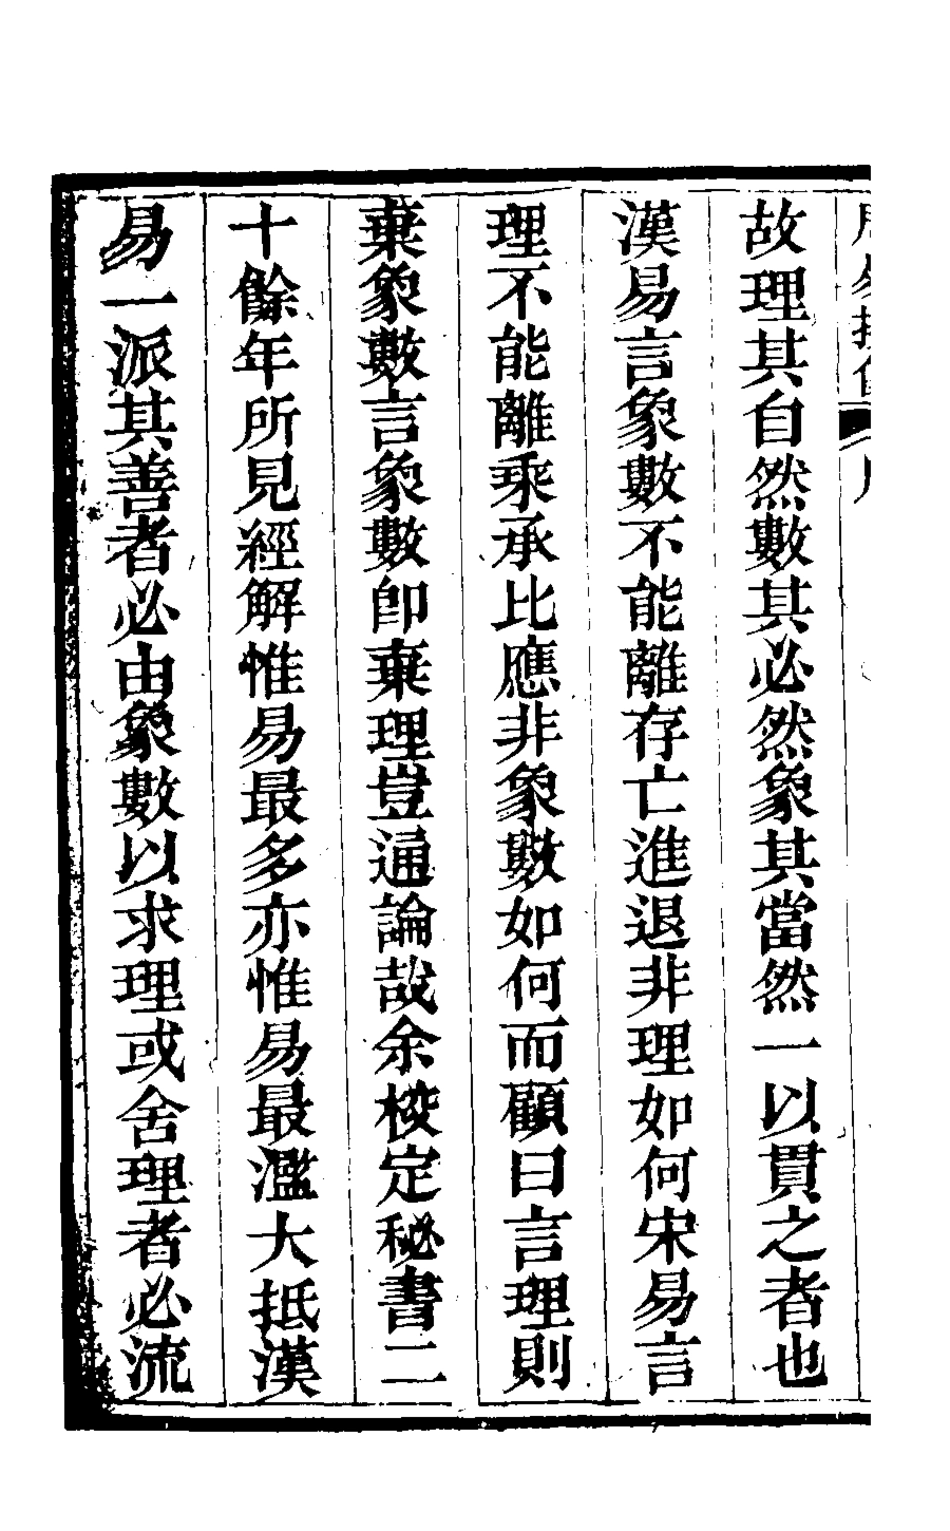 故理其自然數其必然象其當然一以貫之者也
漢易言象數不能離存亡進退非理如何宋易言
理不能離乘承比應非象數如何而顧曰言理則
棄象數言象數卽棄理豈通論哉余校定秘書二
十餘年所見經解惟易最多亦惟易最濫大抵漢
易一派其善者必由象數以求理或舍理者必流